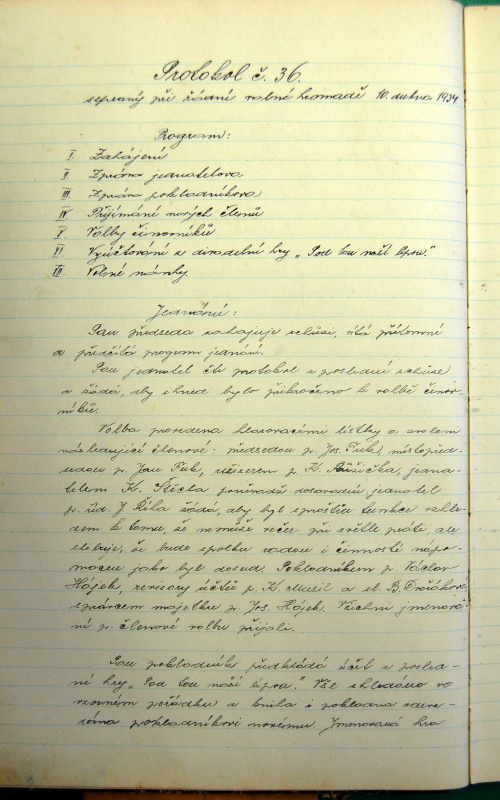 Protokol č. 36.
sepsaný při řádné valné hromadě 10. dubna 1934
Program:
I Zahájení
II Zpráva jednatelova
III Zpráva pokladníkova
IV. Přijímání nových členů
V Volby činovníků
VI. Vyúčtování z divadelní hry „Pod tou naší lípou."
VII. Volné návrhy.
Jednání:
Pan předseda zahajuje schůzi, vítá přítomné
a předčítá program jednání.
Pan jednatel čte protokol z poslední schůze
a žádá, aby ihned bylo přikročeno k volbě činov-
níků.
Volba provedena hlasovacími lístky a zvoleni
následující členové: předsedou p. Jos. Fuk, místopřed-
sedou p. Jan Fuk, režiserem p. K. Růžička, jedna-
telem K. Šticla poněvadž dosavadní jednatel
p. úd. J. Říha žádá, aby byl zproštěn funkce vzhle-
dem k tomu, že nemůže večer při světle psáti, ale
slibuje, že bude spolku radou i činností nápo-
mocen jako byl dosud. Pokladníkem p. Václav
Hájek, revisory účtů p. K. Musil a sl. B. Dvořáková
správcem majetku p. Jos. Hájek. Všichni jmenova-
ní p. členové volbu přijali.
Pan pokladník předkládá účet z posled-
ní hry „Pod tou naší lípou." Vše shledáno ve
vzorném pořádku a kniha i pokladna odev-
zdána pokladníkovi novému. Jmenovaná hra